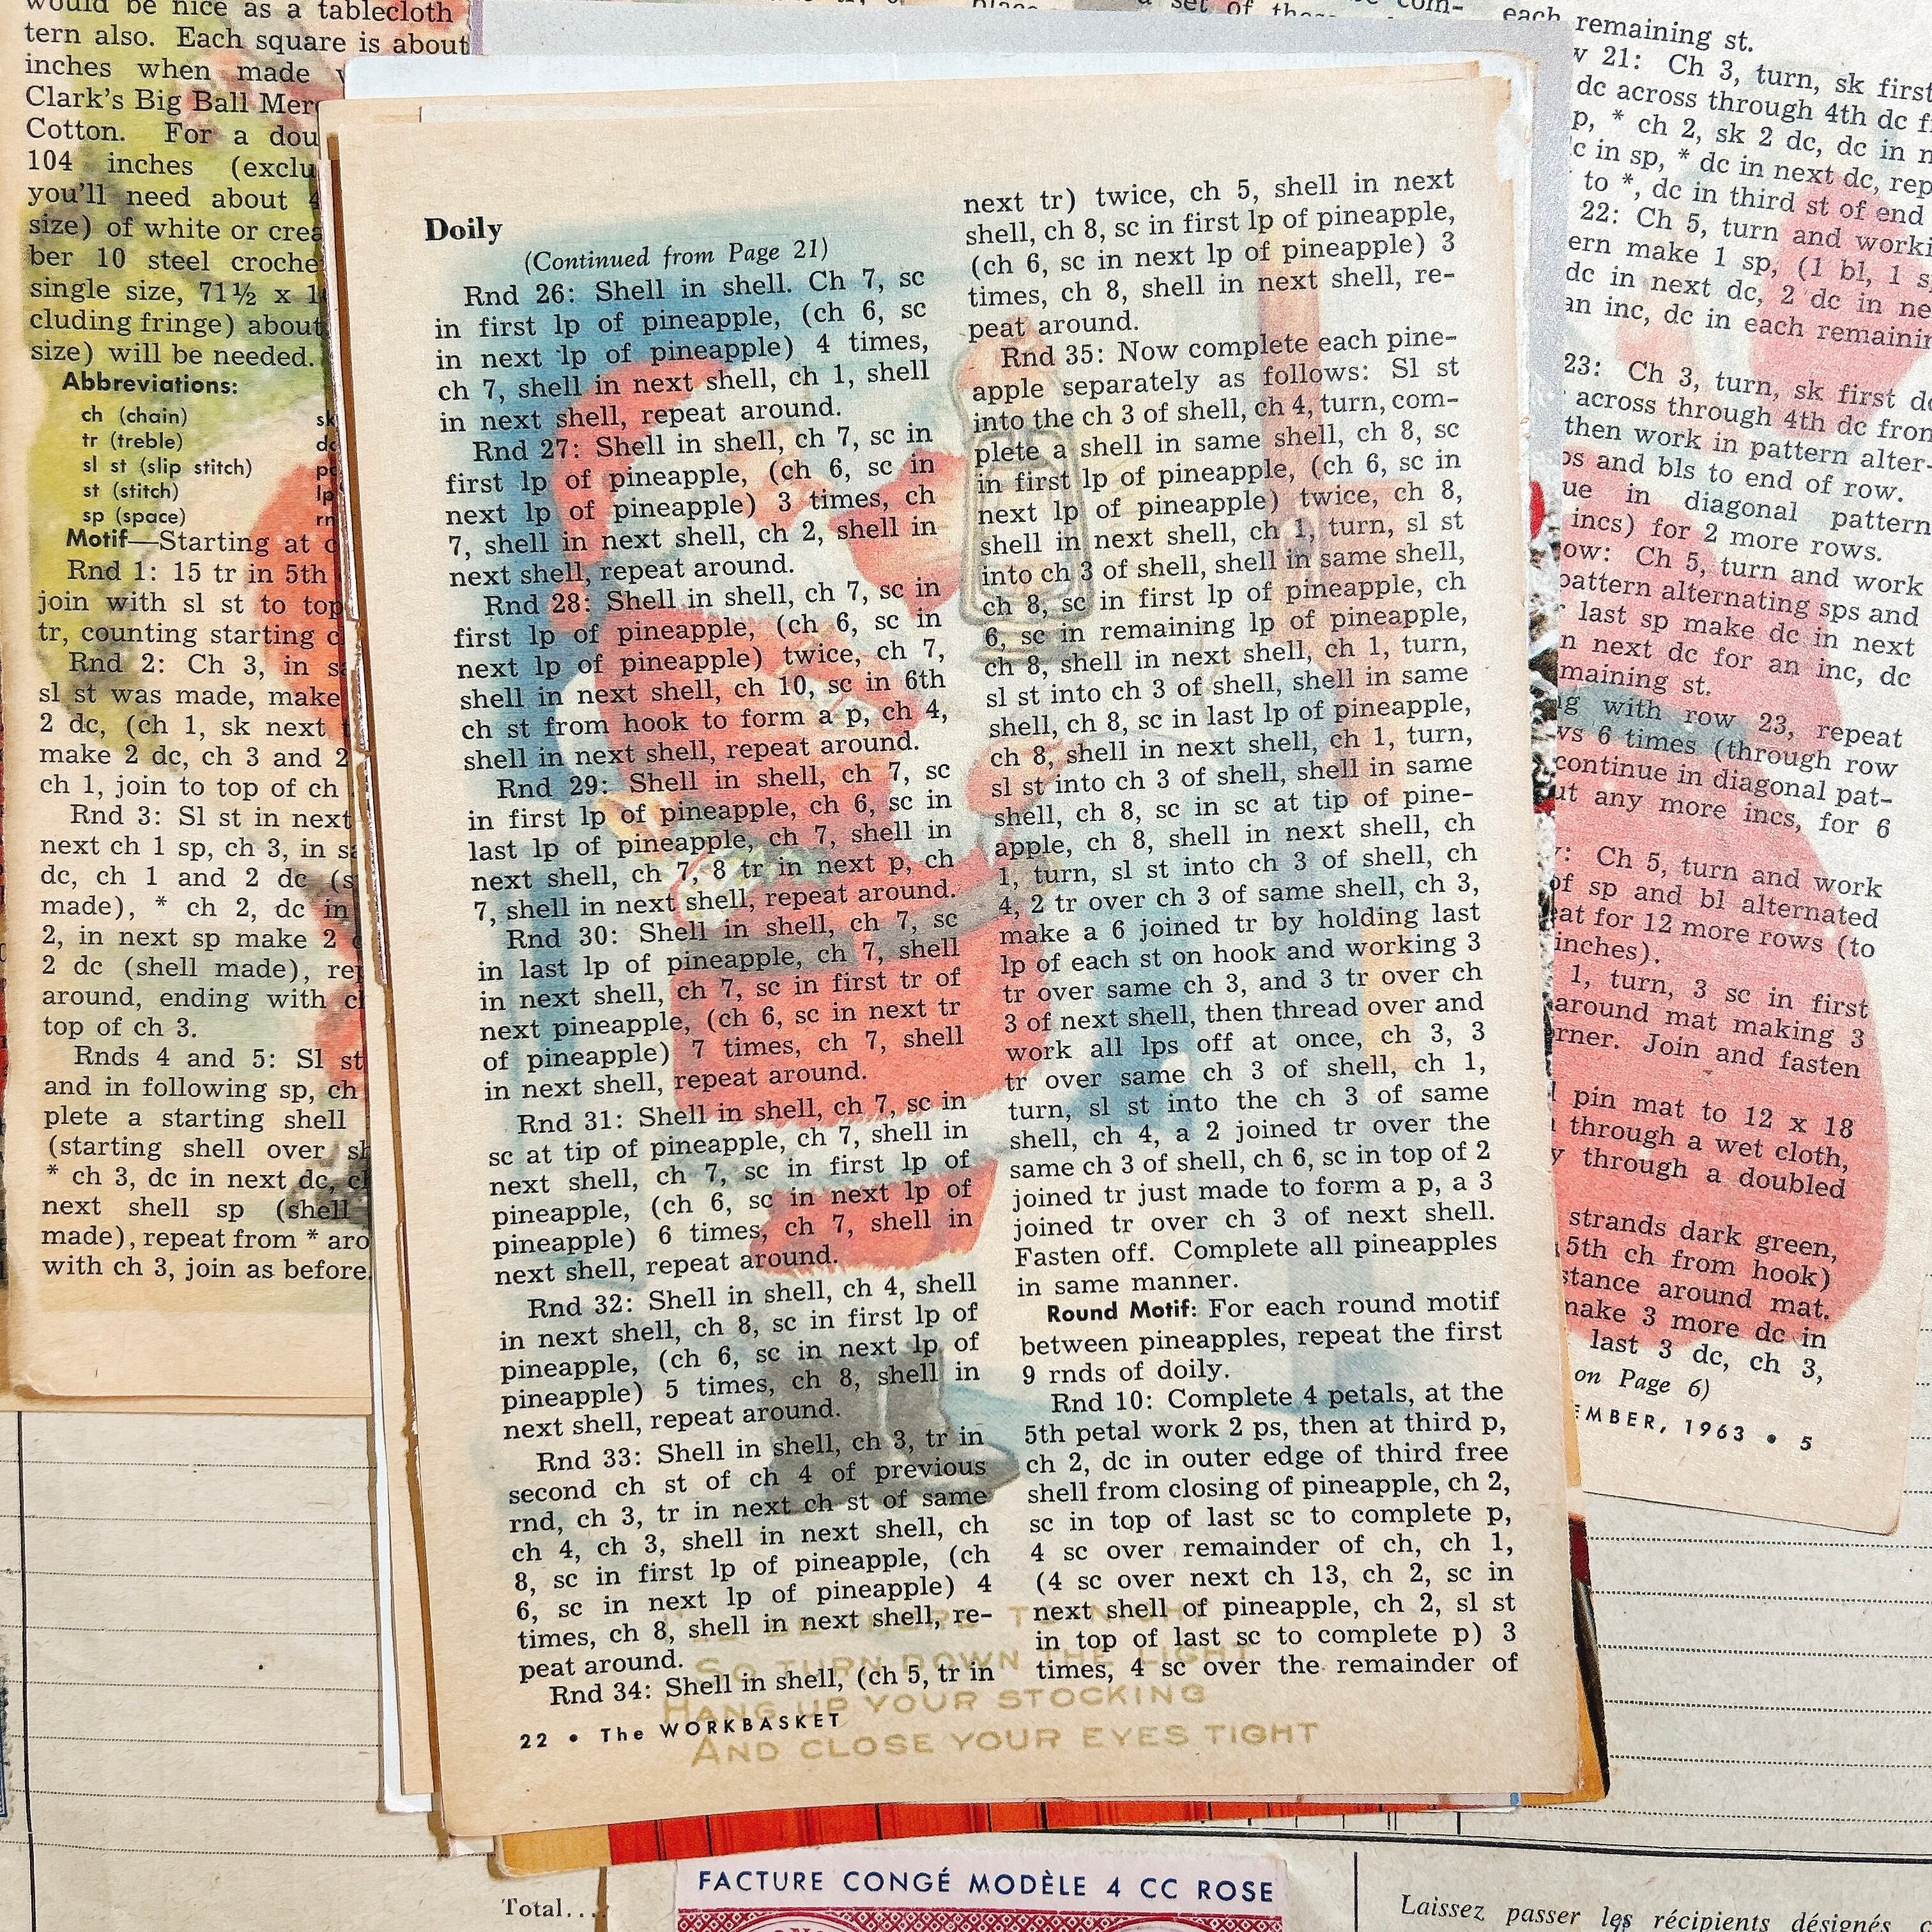 would be nice as a tablecloth
tern also. Each square is about
inches when made
Clark's Big Ball
Cotton. For a
104 inches
you'll need about
size) of white or
ber 10 steel
single size, 71½ x
cluding fringe) about
size) will be needed.
Abbreviations:
ch (chain)
tr (treble)
sl st (slip stitch)
st (stitch)
sp (space)
Motif—Starting at
Rnd 1: 15 tr in 5th
join with sl st to top
tr, counting starting
Rnd 2: Ch 3, in
sl st was made, make
2 dc, (ch 1, sk next
make 2 dc, ch 3 and 2
ch 1, join to top of ch
Rnd 3: Sl st in next
next ch 1 sp, ch 3, in
dc, ch 1 and 2 dc
made), * ch 2, dc in
2, in next sp make 2
2 dc (shell made),
around, ending with
top of ch 3.
Rnds 4 and 5: Sl st
and in following sp, ch
plete a starting shell
(starting shell over
* ch 3, dc in next dc,
next shell sp (shell
made), repeat from *
with ch 3, join as before.
Doily
(Continued from Page 21)
Rnd 26: Shell in shell. Ch 7, sc
in first lp of pineapple, (ch 6, sc
in next lp of pineapple) 4 times,
ch 7, shell in next shell, ch 1, shell
in next shell, repeat around.
Rnd 27: Shell in shell, ch 7, sc in
first lp of pineapple, (ch 6, sc in
next lp of pineapple) 3 times, ch
7, shell in next shell, ch 2, shell in
next shell, repeat around.
Rnd 28: Shell in shell, ch 7, sc in
first lp of pineapple, (ch 6, sc in
next lp of pineapple) twice, ch 7,
shell in next shell, ch 10, sc in 6th
ch st from hook to form a p, ch 4,
shell in next shell, repeat around.
Rnd 29: Shell in shell, ch 7, sc
in first lp of pineapple, ch 6, sc in
last lp of pineapple, ch 7, shell in
next shell, ch 7, 8 tr in next p, ch
7, shell in next shell, repeat around.
Rnd 30: Shell in shell, ch 7, sc
in last lp of pineapple, ch 7, shell
in next shell, ch 7, sc in first tr of
next pineapple, (ch 6, sc in next tr
of pineapple) 7 times, ch 7, shell
in next shell, repeat around.
Rnd 31: Shell in shell, ch 7, sc in
sc at tip of pineapple, ch 7, shell in
next shell, ch 7, sc in first lp of
pineapple, (ch 6, sc in next lp of
pineapple) 6 times, ch 7, shell in
next shell, repeat around.
Rnd 32: Shell in shell, ch 4, shell
in next shell, ch 8, sc in first lp of
pineapple, (ch 6, sc in next lp of
pineapple) 5 times, ch 8, shell in
next shell, repeat around.
Rnd 33: Shell in shell, ch 3, tr in
second ch st of ch 4 of previous
rnd, ch 3, tr in next ch st of same
ch 4, ch 3, shell in next shell, ch
8, sc in first lp of pineapple, (ch
6, sc in next lp of pineapple) 4
times, ch 8, shell in next shell, re-
peat around.
Rnd 34: Shell in shell, (ch 5, tr in
22 • The WORKBASKET
next tr) twice, ch 5, shell in next
shell, ch 8, sc in first lp of pineapple,
(ch 6, sc in next lp of pineapple) 3
times, ch 8, shell in next shell, re-
peat around.
Rnd 35: Now complete each pine-
apple separately as follows: Sl st
into the ch 3 of shell, ch 4, turn, com-
plete a shell in same shell, ch 8, sc
in first lp of pineapple, (ch 6, sc in
next lp of pineapple) twice, ch 8,
shell in next shell, ch 1, turn, sl st
into ch 3 of shell, shell in same shell,
ch 8, sc in first lp of pineapple, ch
6, sc in remaining lp of pineapple,
ch 8, shell in next shell, ch 1, turn,
sl st into ch 3 of shell, shell in same
shell, ch 8, sc in last lp of pineapple,
ch 8, shell in next shell, ch 1, turn,
sl st into ch 3 of shell, shell in same
shell, ch 8, sc in sc at tip of pine-
apple, ch 8, shell in next shell, ch
1, turn, sl st into ch 3 of shell, ch
4, 2 tr over ch 3 of same shell, ch 3,
make a 6 joined tr by holding last
lp of each st on hook and working 3
tr over same ch 3, and 3 tr over ch
3 of next shell, then thread over and
work all lps off at once, ch 3, 3
tr over same ch 3 of shell, ch 1,
turn, sl st into the ch 3 of same
shell, ch 4, a 2 joined tr over the
same ch 3 of shell, ch 6, sc in top of 2
joined tr just made to form a p, a 3
joined tr over ch 3 of next shell.
Fasten off. Complete all pineapples
in same manner.
Round Motif: For each round motif
between pineapples, repeat the first
9 rnds of doily.
Rnd 10: Complete 4 petals, at the
5th petal work 2 ps, then at third p,
ch 2, dc in outer edge of third free
shell from closing of pineapple, ch 2,
sc in top of last sc to complete p,
4 sc over remainder of ch, ch 1,
(4 sc over next ch 13, ch 2, sc in
next shell of pineapple, ch 2, sl st
in top of last sc to complete p) 3
times, 4 sc over the remainder of
SO TURN DOWN THE LIGHT
HANG UP YOUR STOCKING
AND CLOSE YOUR EYES TIGHT
each remaining st.
21: Ch 3, turn, sk first
dc across through 4th dc
p, * ch 2, sk 2 dc, dc in
in sp, * dc in next dc,
to *, dc in third st of end
22: Ch 5, turn and
make 1 sp, (1 bl, 1
dc in next dc, 2 dc in
an inc, dc in each
23: Ch 3, turn, sk first
across through 4th dc from
then work in pattern alter-
and bls to end of row.
in diagonal pattern
incs) for 2 more rows.
Ch 5, turn and work
pattern alternating sps and
last sp make dc in next
next dc for an inc, dc
st.
with row 23, repeat
6 times (through row
continue in diagonal pat-
any more incs, for 6
Ch 5, turn and work
of sp and bl alternated
for 12 more rows (to
inches).
1, turn, 3 sc in first
around mat making 3
Join and fasten
pin mat to 12 x 18
through a wet cloth,
through a doubled
strands dark green,
5th ch from hook)
around mat.
make 3 more dc in
last 3 dc, ch 3,
on Page 6)
1963 • 5
Total...
FACTURE CONGÉ MODÈLE 4 CC ROSE
Laissez passer les récipients désignés